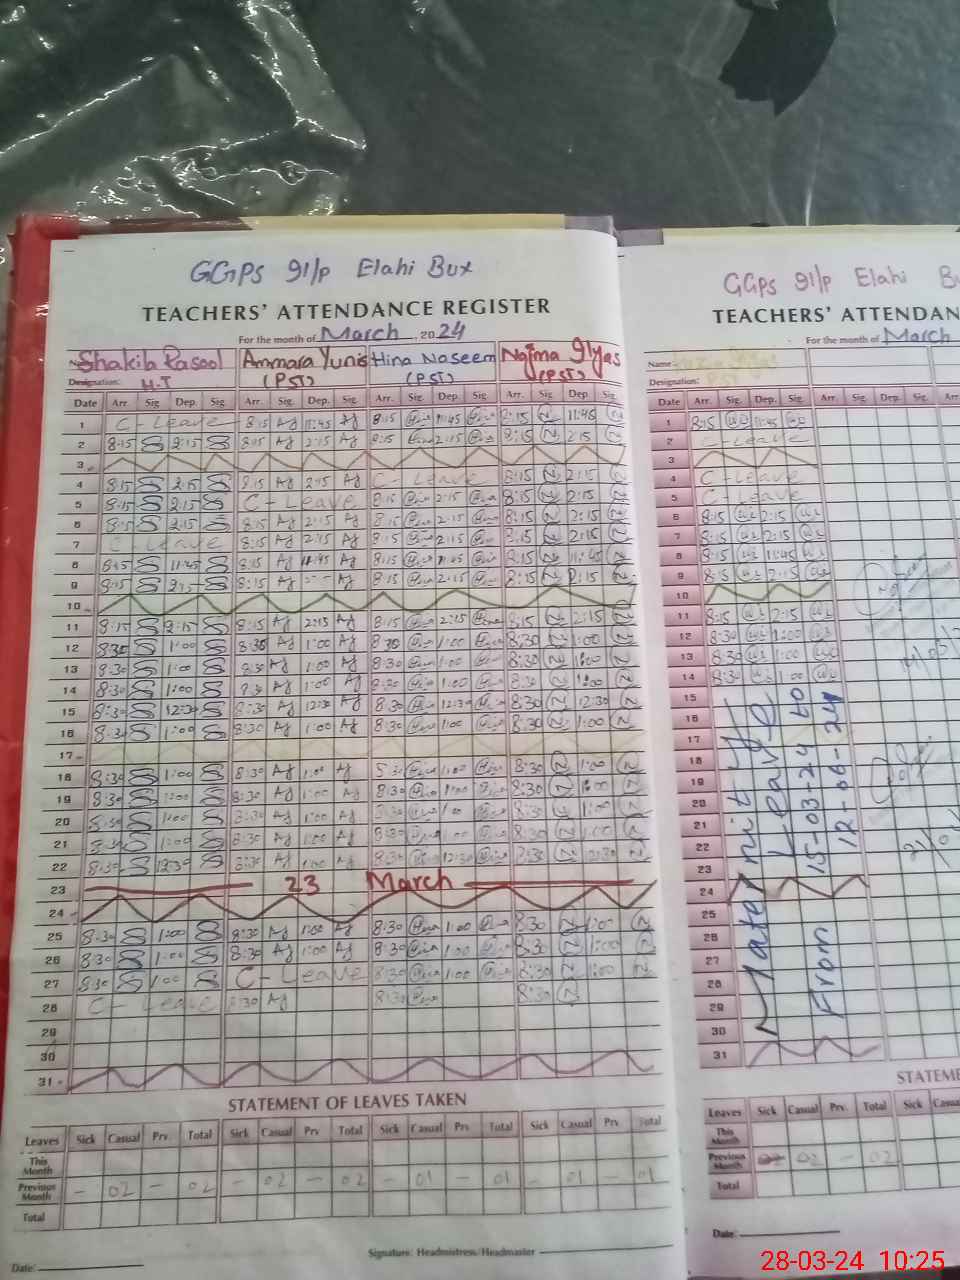 GGPS 91/P Elahi Bux
TEACHERS' ATTENDANCE REGISTER
For the month of March, 2024
Name Shakila Rasool Ammara Yunis Hina Naseem Najma Ilyas
Designation: H.T (PST) (PST) (PST)
Date Arr. Sig. Dep. Sig. Arr. Sig. Dep. Sig. Arr. Sig. Dep. Sig. Arr. Sig. Dep. Sig.
1 C-Leave 8:15 AJ 11:45 AJ 8:15 11:45 8:15 N 11:45 N
2 8:15 2:15 8:15 AJ 2:15 AJ 8:15 2:15 8:15 N 2:15 N
3
4 8:15 2:15 8:15 AJ 2:15 AJ C-Leave 8:15 N 2:15 N
5 8:15 2:15 C-Leave 8:15 2:15 8:15 N 2:15 N
6 8:15 2:15 8:15 AJ 2:15 AJ 8:15 2:15 8:15 N 2:15 N
7 C-Leave 8:15 AJ 2:15 AJ 8:15 2:15 8:15 N 2:15 N
8 8:15 11:45 8:15 AJ 11:45 AJ 8:15 11:45 8:15 N 11:45 N
9 8:15 8:15 AJ AJ 8:15 2:15 8:15 N 2:15 N
10
11 8:15 2:15 8:15 AJ 2:15 AJ 8:15 2:15 8:15 N 2:15 N
12 8:30 1:00 8:30 AJ 1:00 AJ 8:30 1:00 8:30 N 1:00 N
13 8:30 1:00 8:30 AJ 1:00 AJ 8:30 1:00 8:30 N 1:00 N
14 8:30 1:00 8:30 AJ 1:00 AJ 8:30 1:00 8:30 N 1:00 N
15 8:30 12:30 8:30 AJ 12:30 AJ 8:30 12:30 8:30 N 12:30 N
16 8:30 1:00 8:30 AJ 1:00 AJ 8:30 1:00 8:30 N 1:00 N
17
18 8:30 1:00 8:30 AJ 1:00 AJ 8:30 1:00 8:30 N 1:00 N
19 8:30 1:00 8:30 AJ 1:00 AJ 8:30 1:00 8:30 N 1:00 N
20 8:30 1:00 8:30 AJ 1:00 AJ 8:30 1:00 8:30 N 1:00 N
21 8:30 1:00 8:30 AJ 1:00 AJ 8:30 1:00 8:30 N 1:00 N
22 8:30 12:30 8:30 AJ 1:00 AJ 8:30 12:30 8:30 N 12:30 N
23 23 March
24
25 8:30 1:00 8:30 AJ 1:00 AJ 8:30 1:00 8:30 N 1:00 N
26 8:30 1:00 8:30 AJ 1:00 AJ 8:30 1:00 8:30 N 1:00 N
27 8:30 1:00 C-Leave 8:30 1:00 8:30 N 1:00 N
28 C-Leave 8:30 AJ 8:30 8:30 N
29
30
31
STATEMENT OF LEAVES TAKEN
Leaves Sick Casual Prv. Total Sick Casual Prv Total Sick Casual Prv Total Sick Casual Prv Total
This Month
Previous Month - 02 - 02 - 02 - 02 - 01 - 01 - 01 - 01
Total
Signature: Headmistress/Headmaster
Date:
GGPS 91/P Elahi
TEACHERS' ATTENDAN
For the month of March
Name
Designation: PST
Date Arr. Sig. Dep. Sig. Arr. Sig. Dep. Sig. Arr.
1 8:15 11:45
2 C-Leave
3
4 C-Leave
5 C-Leave
6 8:15 2:15
7 8:15 2:15
8 8:15 11:45
9 8:15 2:15
10
11 8:15 2:15
12 8:30 1:00
13 8:30 1:00
14 8:30 1:00
15
16
17
18
19
20
21
22
23
24
25
26
27
28
29
30
31
Maternity Leave
From 15-03-24 to 12-06-24
STATEME
Leaves Sick Casual Prv. Total Sick Casua
This Month
Previous Month 02 - 02
Total
Date:
28-03-24 10:25